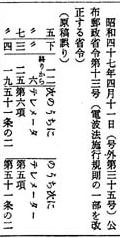 昭和四十七年四月十一日(号外第三十五号)公
布郵政省令第十三号(電波法施行規則の一部を改
正する省令)
(原稿誤り)
五 下 一二 次のうちに のうち次に
〃 〃 終りから六 テレメータ テレメーター
七 三 一五 第六項 第五項
〃 四 一 九五十一条の二 第五十一条の二